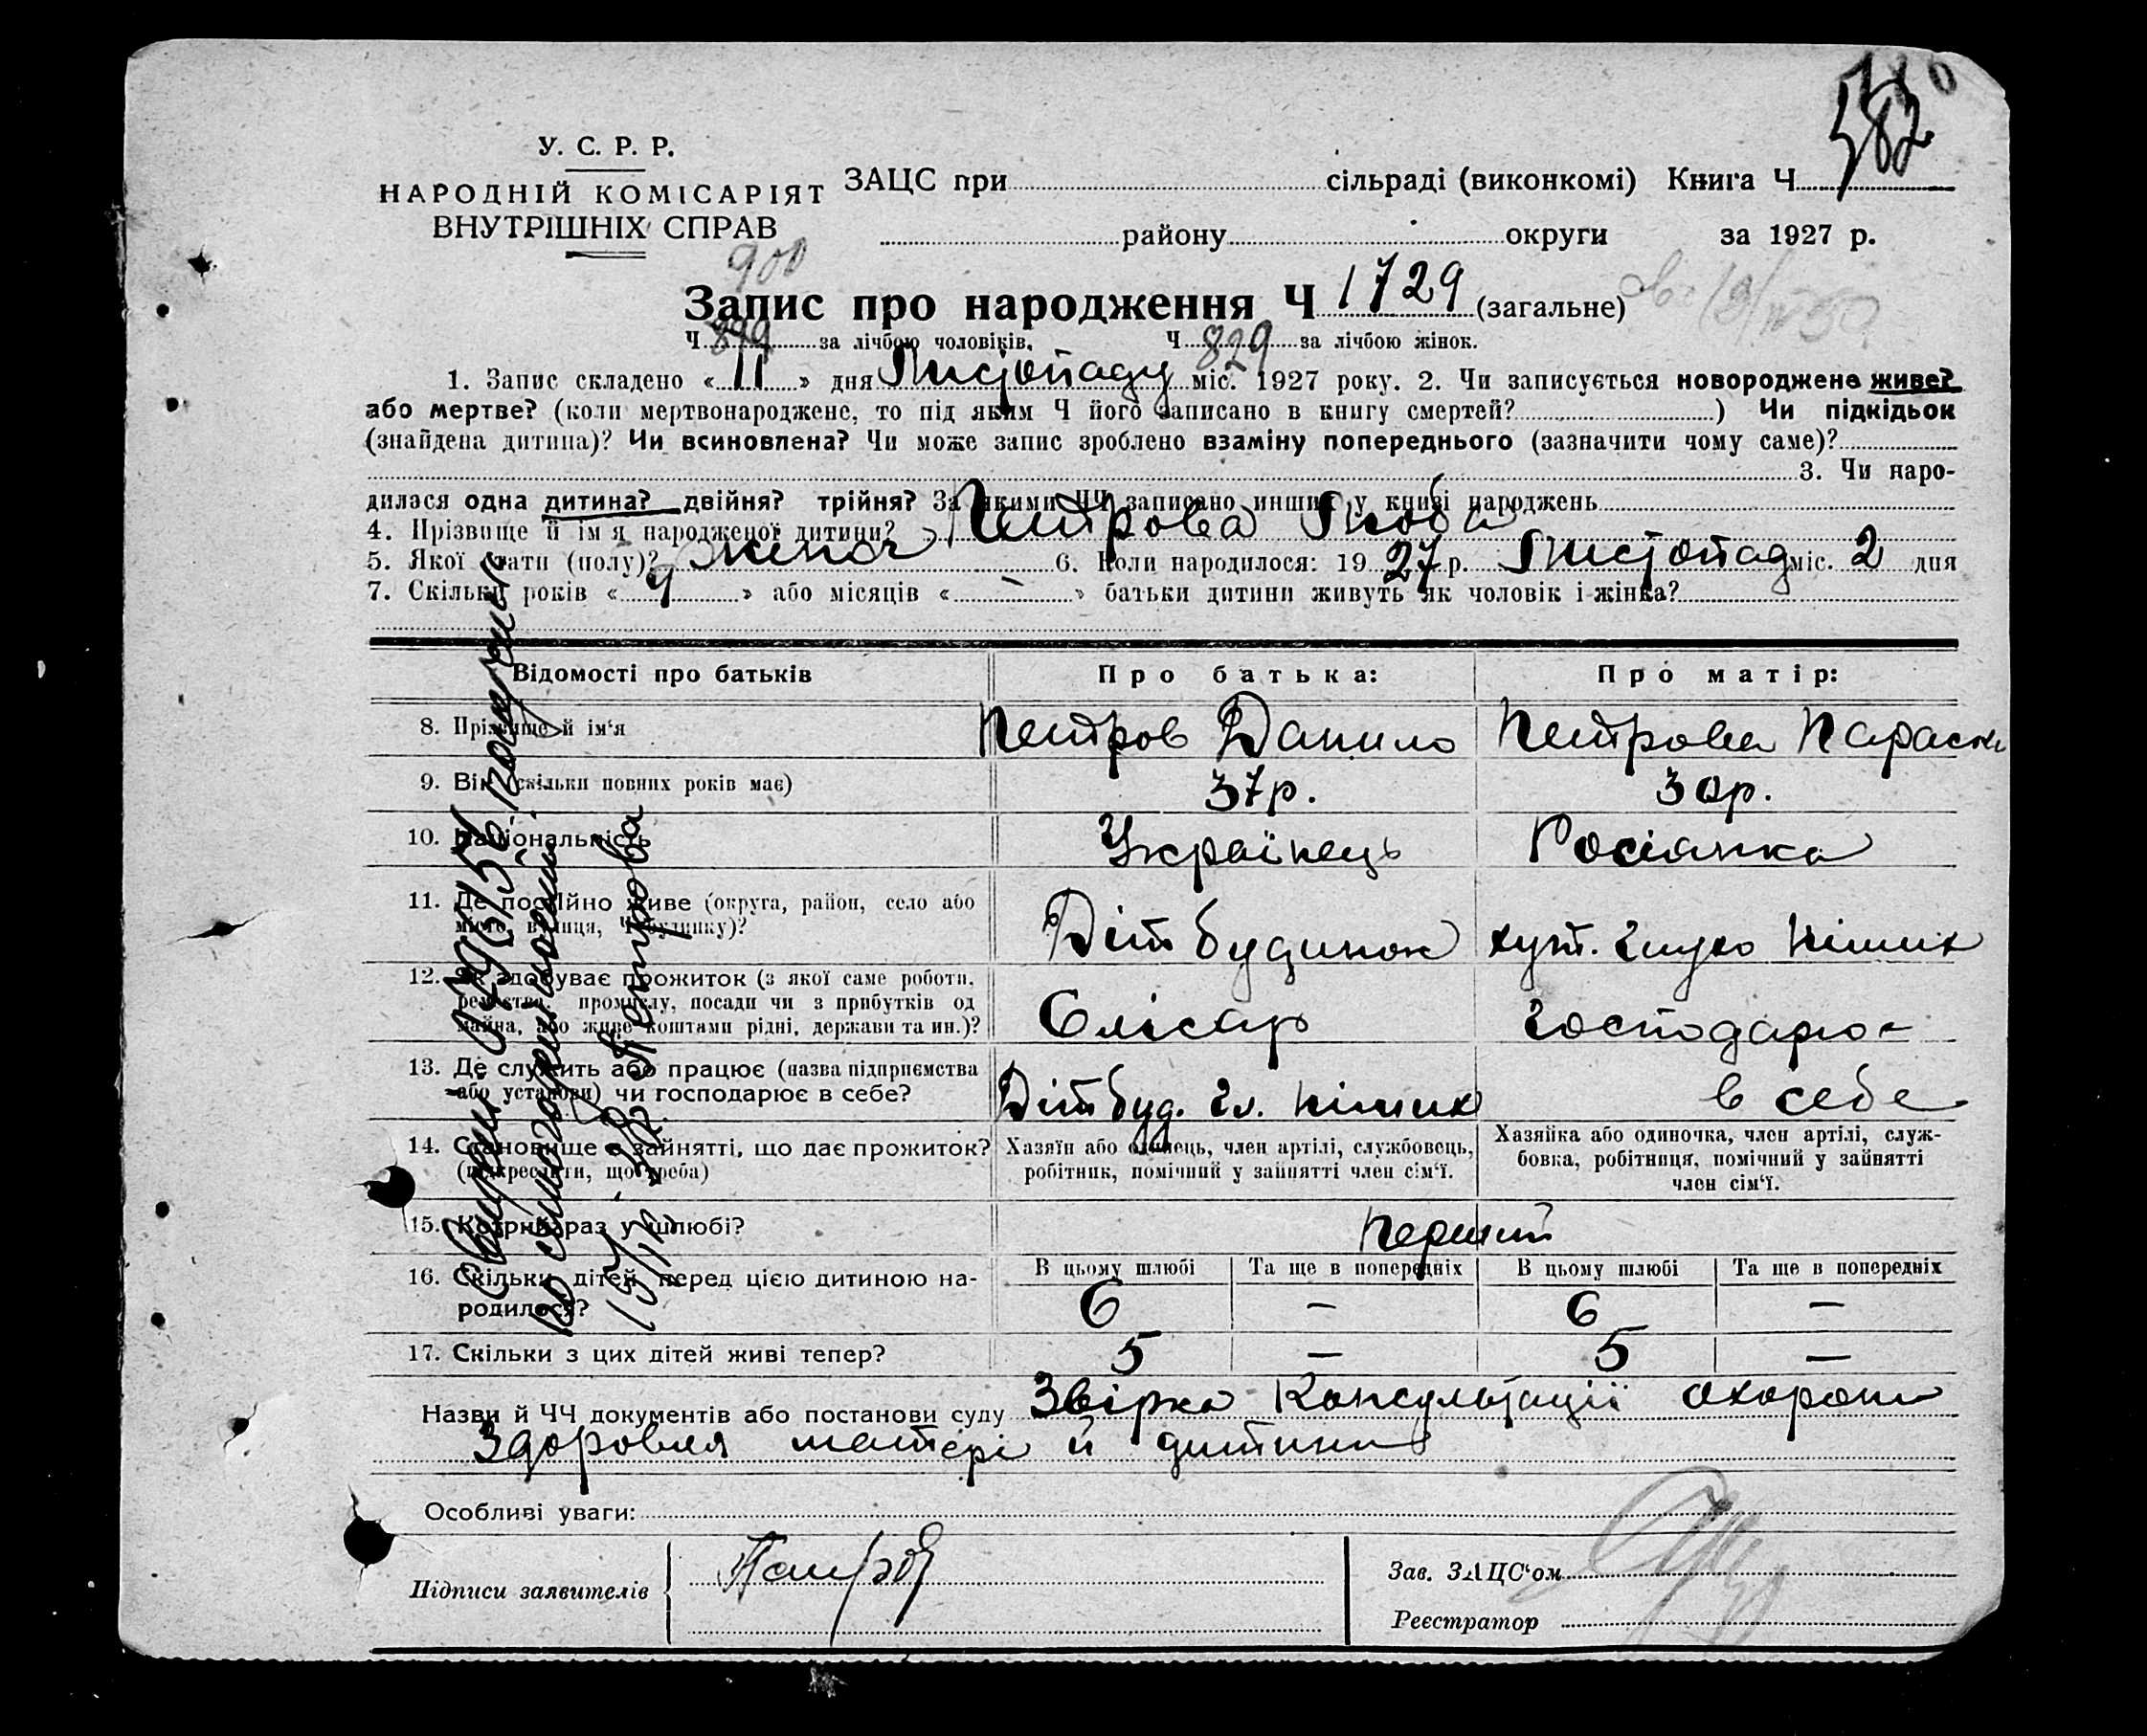 582
У. С. Р. Р.
НАРОДНІЙ КОМІСАРІЯТ
ВНУТРІШНІХ СПРАВ
ЗАЦС при сільраді (виконкомі) Книга Ч
району округи за 1927 р.
900
Запис про народження Ч 1729 (загальне)
Ч 899 за лічбою чоловіків. Ч 829 за лічбою жінок.
1. Запис складено « 11 » дня Листопаду міс. 1927 року. 2. Чи записується новороджене живе?
або мертве? (коли мертвонароджене, то під яким Ч його записано в книгу смертей? ) Чи підкідьок
(знайдена дитина)? Чи всиновлена? Чи може запис зроблено взаміну попереднього (зазначити чому саме)?
3. Чи наро-
дилася одна дитина? двійня? трійня? За якими ЧЧ записано инших у книзі народжень
4. Прізвище й ім'я народженої дитини? Петрова Любов
5. Якої стати (полу)? жіноч 6. Коли народилося: 1927 р. Листопад міс. 2 дня
7. Скільки років « 9 » або місяців « – » батьки дитини живуть як чоловік і жінка?
Відомості про батьків Про батька: Про матір:
8. Прізвище й ім'я Петров Данило Петрова Параска
9. Вік (скільки повних років має) 37 р. 30 р.
10. Національність Українець Росіянка
11. Де постійно живе (округа, район, село або
місто, вулиця, Ч будинку)? Дітбудинок хут.
12. Як здобуває прожиток (з якої саме роботи,
ремества, промислу, посади чи з прибутків од
майна, або живе коштами рідні, держави та ин.)? Слісар Господарює
13. Де служить або працює (назва підприємства
або установи) чи господарює в себе? Дітбуд. в себе
14. Становище в зайнятті, що дає прожиток?
(підкреслити, що треба)
Хазяїн або одинець, член артілі, службовець,
робітник, помічний у зайнятті член сім'ї.
Хазяйка або одиночка, член артілі, служ-
бовка, робітниця, помічний у зайнятті
член сім'ї.
15. Котрий раз у шлюбі? Перший
16. Скільки дітей перед цією дитиною на-
родилося?
В цьому шлюбі Та ще в попередніх В цьому шлюбі Та ще в попередніх
6 – 6 –
17. Скільки з цих дітей живі тепер? 5 – 5 –
Назви й ЧЧ документів або постанови суду Звірка Консультації охорони
здоровля матері й дитини
Особливі уваги:
Підписи заявителів Петров
Зав. ЗАЦС'ом
Реєстратор
получила
Петрова